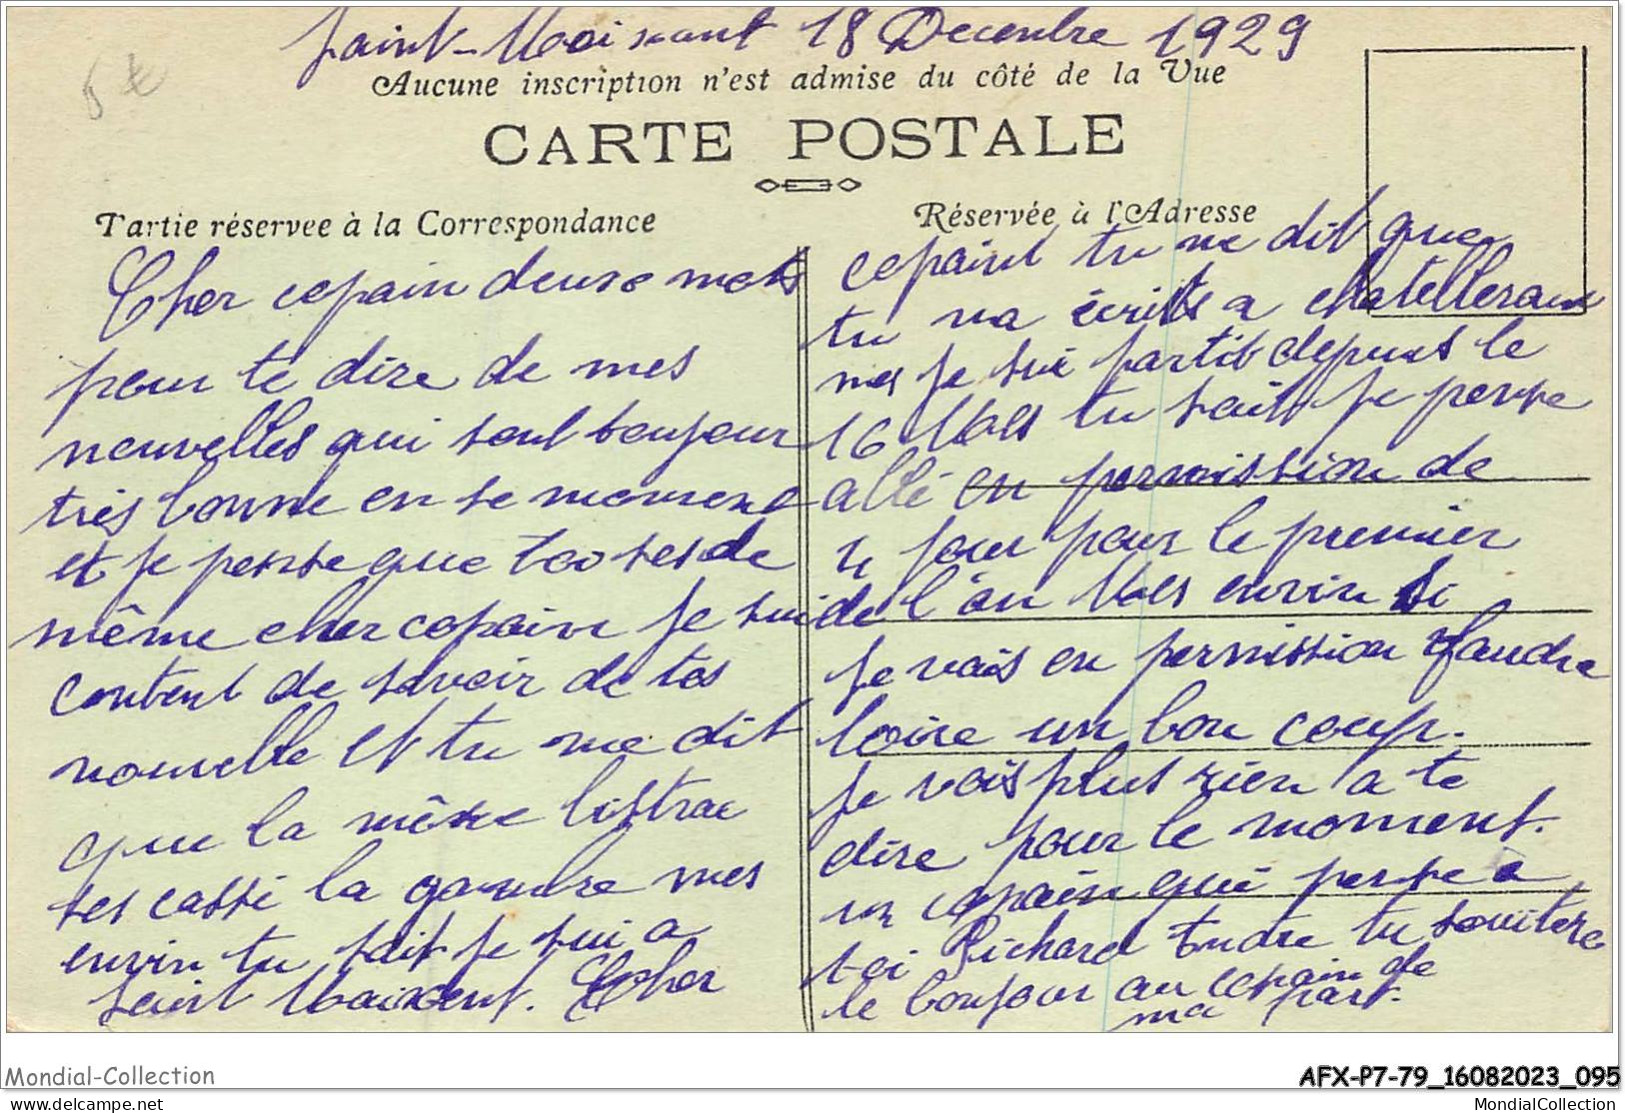 Saint-Maixant 18 Decembre 1929
Aucune inscription n'est admise du côté de la Vue
5€
CARTE POSTALE
Partie réservee à la Correspondance
Cher copain deuse mots
pour te dire de mes
nouvelles qui sont toujour
tres bonne en se moment
et je pense que toi ses de
même cher copain je sui
content de savoir de tes
nouvelle et tu me dit
que la même
ses cassé la mes
enfin tu sait je sui a
Saint Maixent. Cher
Réservée à l'Adresse
copaint tu me dit que
tu ma écrits a chatelleraux
mes je sui partit depuis le
16 Mes tu sait je pense
allé en permission de
4 jour pour le premier
de l'an Mes enfin si
je vais en permission faudra
boire un bon coup.
je vois plus rien a te
dire pour le moment.
un copain qui pense a
toi Richard tu souitera
le bonjour au copain de
ma part.
Mondial-Collection
AFX-P7-79_16082023_095
www.delcampe.net
MondialCollection